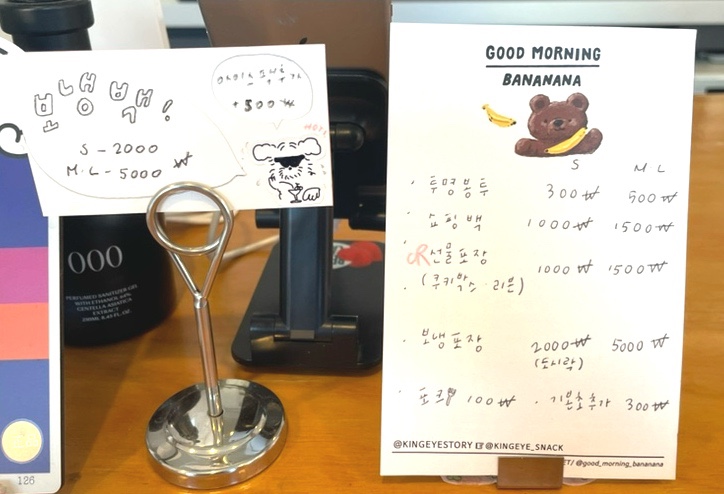 보냉백!
S - 2000
M·L - 5000 ₩
아이스팩 추가
+500 ₩
000
PERFUMED SANITIZER GEL
WITH ETHANOL 64%
CENTELLA ASIATICA
EXTRACT
126
GOOD MORNING
BANANANA
S M L
· 투명봉투 300 ₩ 500 ₩
· 쇼핑백 1000 ₩ 1500 ₩
· 선물포장 1000 ₩ 1500 ₩
· (쿠키박스 · 리본)
· 보냉포장 2000 ₩ 5000 ₩
(도시락)
· 포크 100 ₩ · 기본초 추가 300 ₩
@KINGEYESTORY @KINGEYE_SNACK
@good_morning_bananana